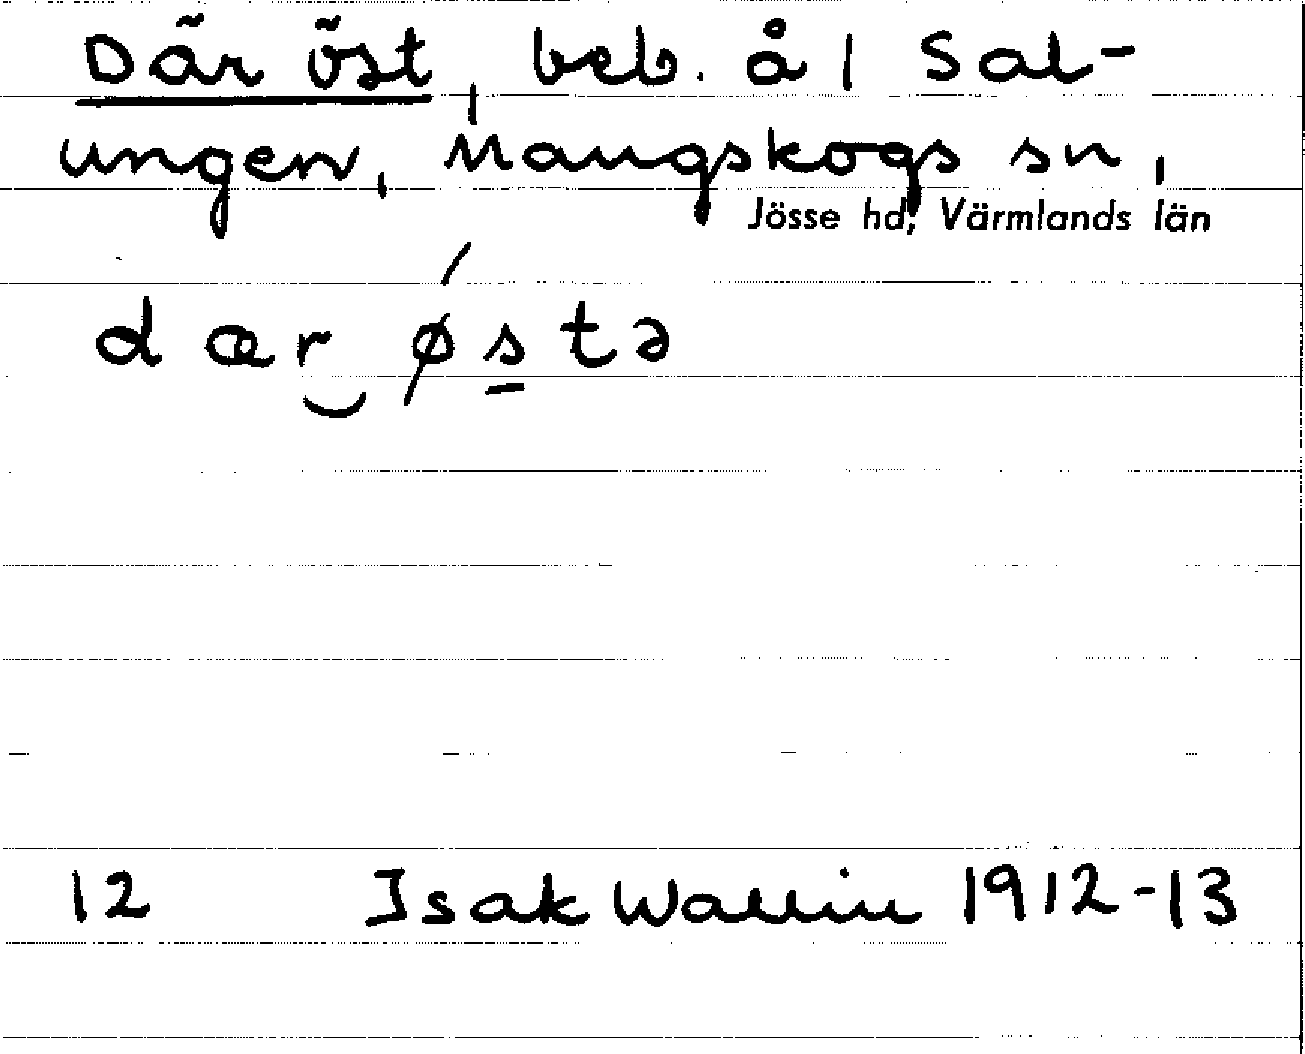 Där öst, beb. å 1 Sal-
ungen, Mangskogs sn,
Jösse hd, Värmlands län
dær ǿstə
12 Isak Wallin 1912-13